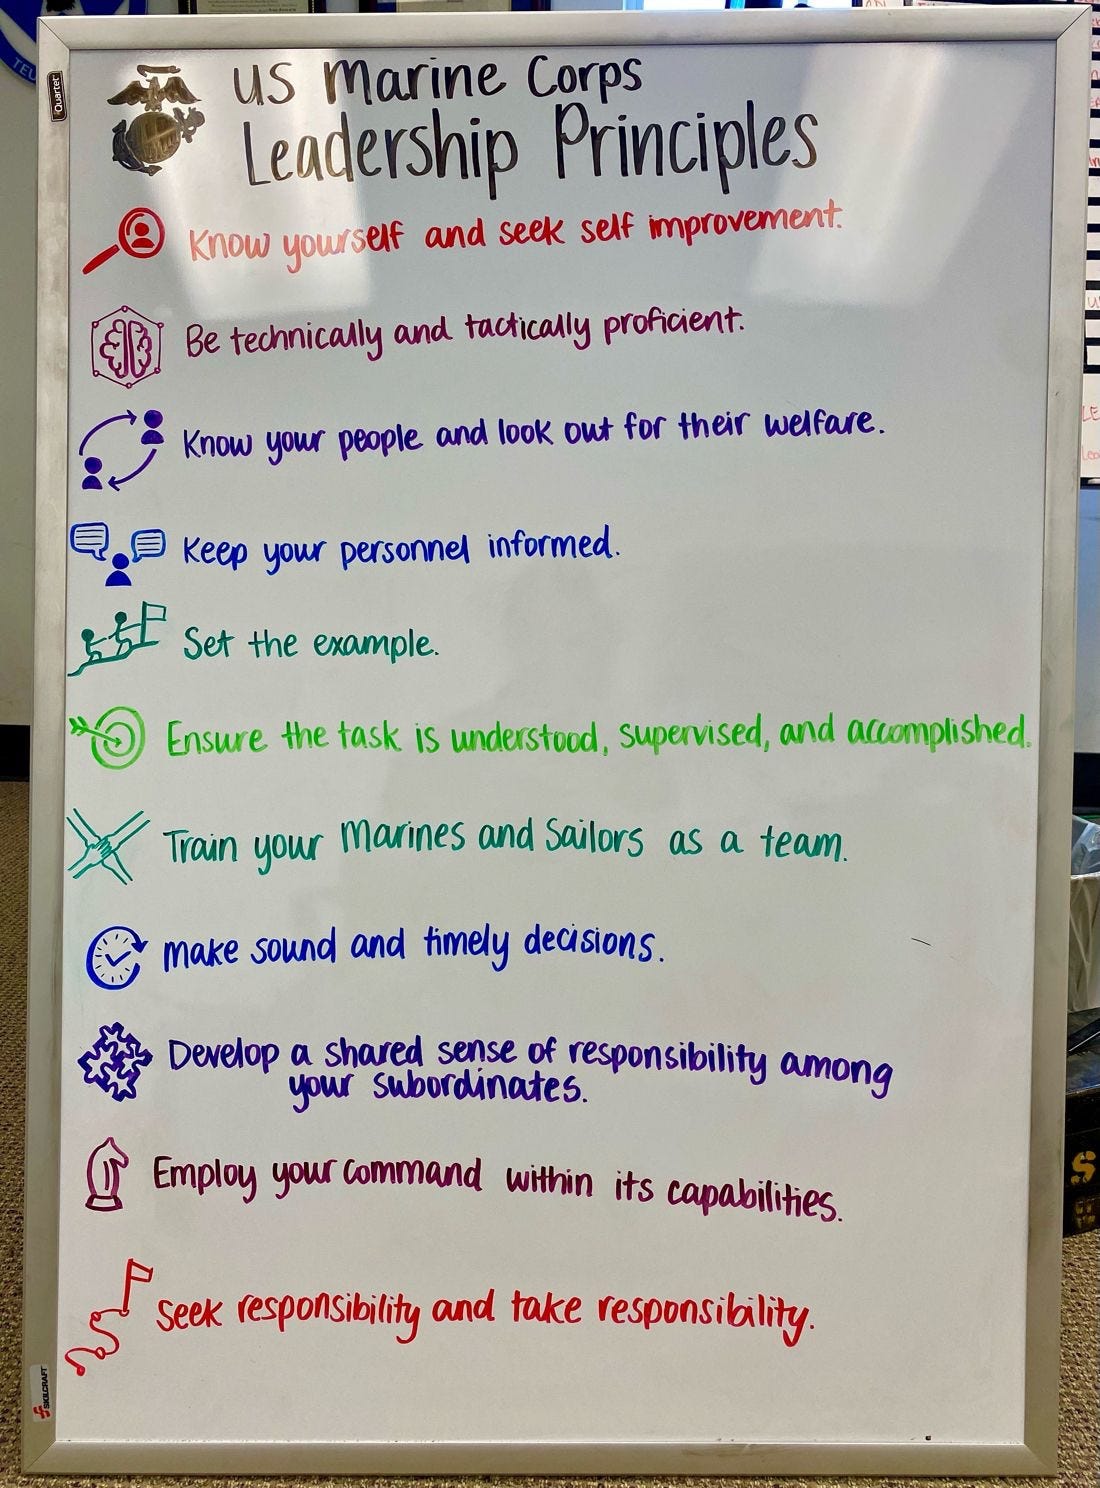 TEU
Quartet
US Marine Corps
Leadership Principles
Know yourself and seek self improvement.
Be technically and tactically proficient.
Know your people and look out for their welfare.
Keep your personnel informed.
Set the example.
Ensure the task is understood, supervised, and accomplished.
Train your Marines and Sailors as a team.
make sound and timely decisions.
Develop a shared sense of responsibility among
your subordinates.
Employ your command within its capabilities.
Seek responsibility and take responsibility.
SKILCRAFT
S